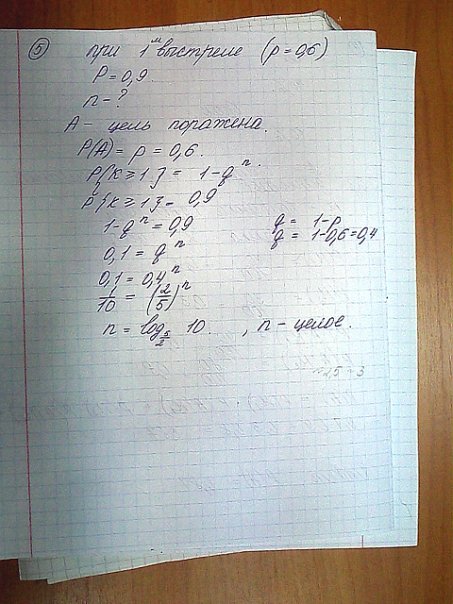 5 при 1м выстреле (p = 0,6)
P = 0,9
n - ?
A - цель поражена.
P(A) = p = 0,6.
P{k ≥ 1} = 1-qⁿ.
P{k ≥ 1} = 0,9
1-qⁿ = 0,9 q = 1-p
0,1 = qⁿ q = 1-0,6 = 0,4
0,1 = 0,4ⁿ
1/10 = (2/5)ⁿ
n = log₅/₂ 10. , n - целое.
≈ 2,5 ≈ 3